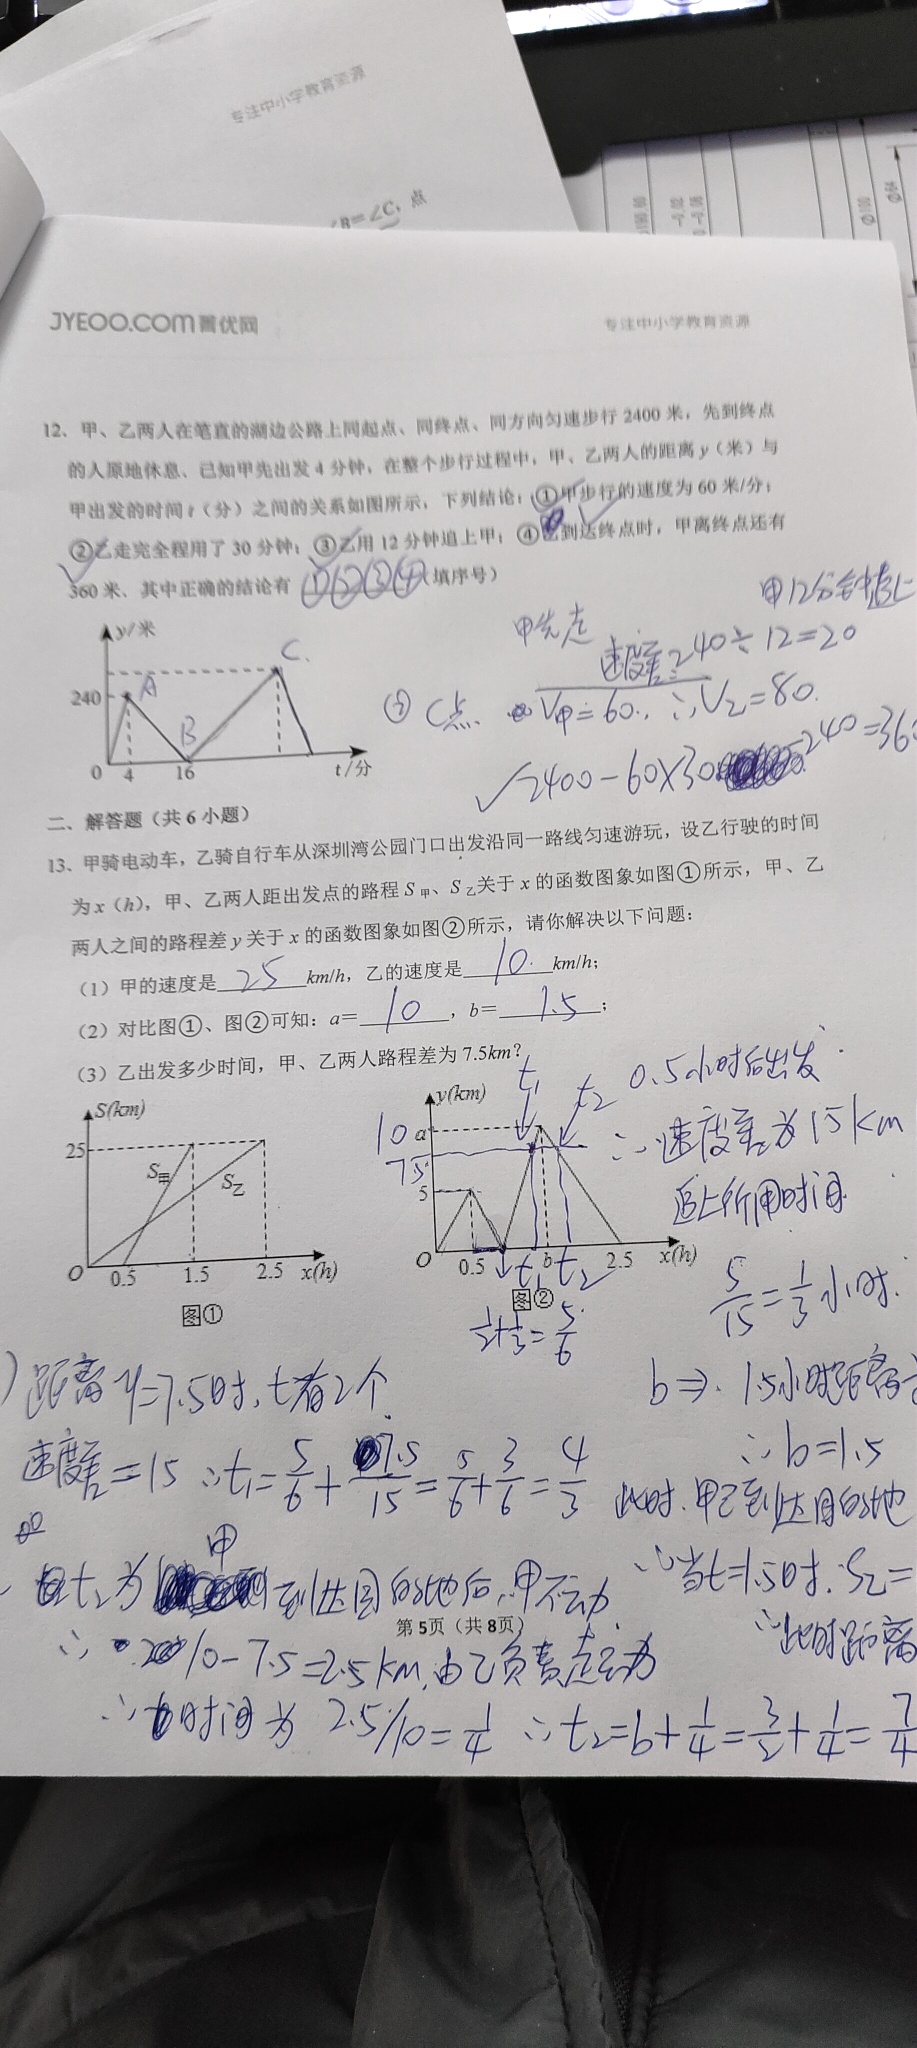 专注中小学教育资源
∠B=∠C,点
JYEOO.COM菁优网
专注中小学教育资源
12、甲、乙两人在笔直的湖边公路上同起点、同终点、同方向匀速步行2400米，先到终点
的人原地休息、已知甲先出发4分钟，在整个步行过程中，甲、乙两人的距离y（米）与
甲出发的时间t（分）之间的关系如图所示，下列结论：①甲步行的速度为60米/分；
②乙走完全程用了30分钟；③乙用12分钟追上甲；④乙到达终点时，甲离终点还有
360米、其中正确的结论有 ①②③④（填序号）
甲12分钟追上
甲先走
速度差=240÷12=20
④ C点 V甲=60，∴V乙=80.
2400-60×30-240=360
y/米
C
240
A
B
0 4 16 t/分
二、解答题（共6小题）
13、甲骑电动车，乙骑自行车从深圳湾公园门口出发沿同一路线匀速游玩，设乙行驶的时间
为x（h），甲、乙两人距出发点的路程S甲、S乙关于x的函数图象如图①所示，甲、乙
两人之间的路程差y关于x的函数图象如图②所示，请你解决以下问题：
（1）甲的速度是 25 km/h，乙的速度是 10 km/h；
（2）对比图①、图②可知：a= 10 ，b= 1.5 ；
（3）乙出发多少时间，甲、乙两人路程差为7.5km？
S(km)
25
S甲
S乙
O 0.5 1.5 2.5 x(h)
图①
y(km)
t1
t2
10 a
7.5
5
O 0.5 b 2.5 x(h)
t1 t2
图②
1/2+1/3=5/6
0.5小时后出发
∴速度差为15km
追上所用时间
5/15=1/3小时.
b⇒1.5小时距离
∴b=1.5
此时.甲已到达目的地
∴当t=1.5时.S乙=
∴此时距离
)距离y=7.5时,t有2个
速度差=15 ∴t1=5/6+7.5/15=5/6+3/6=4/3
t2为甲到达目的地后,甲不动
第5页（共8页）
∴10-7.5=2.5km,由乙负责走动
∴时间为 2.5/10=1/4 ∴t2=b+1/4=3/2+1/4=7/4